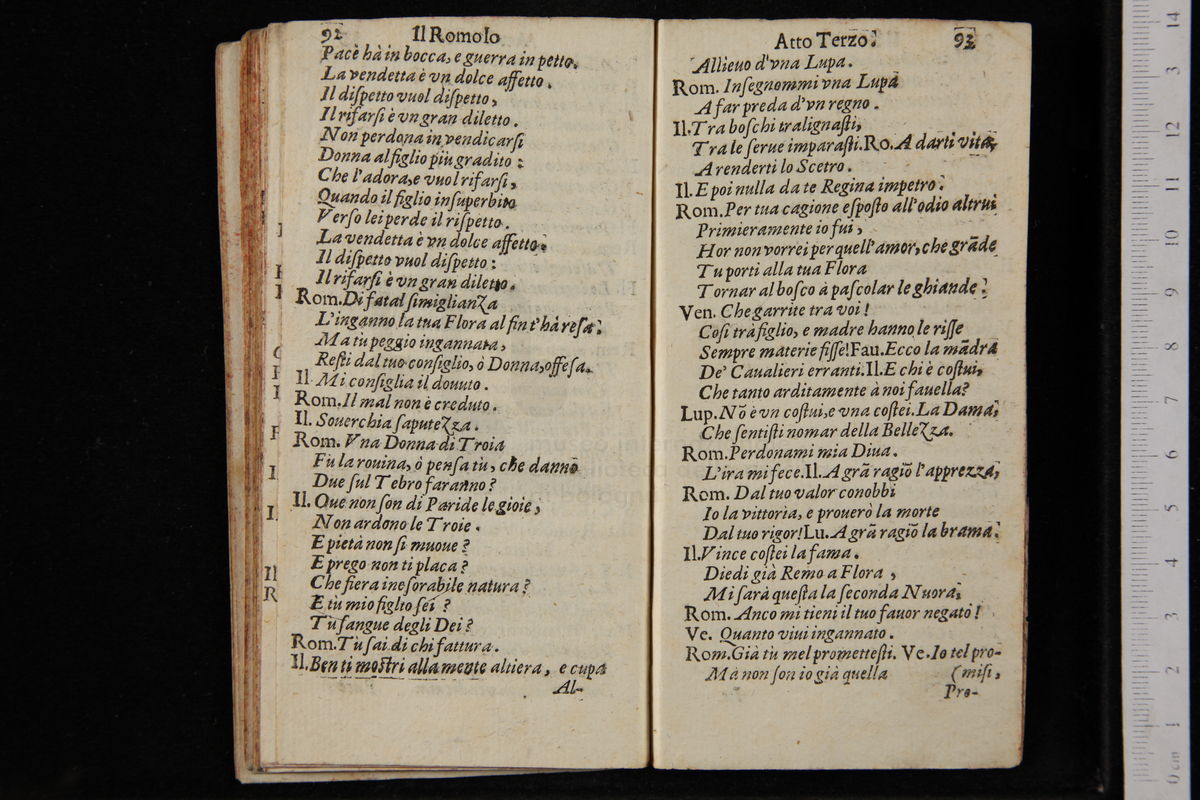 92 Il Romolo
Pacè hà in bocca, e guerra in petto.
La vendetta è vn dolce affetto.
Il diſpetto vuol diſpetto,
Il rifarſi è vn gran diletto.
Non perdona in vendicarſi
Donna al figlio più gradito:
Che l'adora, e vuol rifarſi,
Quando il figlio inſuperbito
Verſo lei perde il riſpetto.
La vendetta è vn dolce affetto.
Il diſpetto vuol diſpetto:
Il rifarſi è vn gran diletto.
Rom. Di fatal ſimiglianza
L'inganno la tua Flora al fin t'hà reſa?
Ma tù peggio ingannata,
Reſti dal tuo conſiglio, ò Donna, offeſa.
Il. Mi conſiglia il douuto.
Rom. Il mal non è creduto.
Il. Souerchia ſaputezza.
Rom. Vna Donna di Troia
Fù la rouina, ò penſa tù, che danno
Due ſul Tebro faranno?
Il. Oue non ſon di Paride le gioie,
Non ardono le Troie.
E pietà non ſi muoue?
E prego non ti placa?
Che fiera ineſorabile natura?
E tù mio figlio ſei?
Tù ſangue degli Dei?
Rom. Tù ſai di chi fattura.
Il. Ben ti moſtri alla mente altiera, e cupa
Al-
Atto Terzo. 93
Allieuo d'vna Lupa.
Rom. Inſegnommi vna Lupa
A far preda d'vn regno.
Il. Tra boſchi tralignaſti,
Tra le ſerue imparaſti. Ro. A darti vita,
A renderti lo Scetro.
Il. E poi nulla da te Regina impetro?
Rom. Per tua cagione eſpoſto all'odio altrui
Primieramente io fui,
Hor non vorrei per quell'amor, che grãde
Tu porti alla tua Flora
Tornar al boſco à paſcolar le ghiande?
Ven. Che garrite tra voi!
Coſi trà figlio, e madre hanno le riſſe
Sempre materie fiſſe! Fau. Ecco la mãdra
De' Caualieri erranti. Il. E chi è coſtui,
Che tanto arditamente à noi fauella?
Lup. Nõ è vn coſtui, e vna coſtei. La Dama,
Che ſentiſti nomar della Bellezza.
Rom. Perdonami mia Diua.
L'ira mi fece. Il. A grã ragiõ l'apprezza,
Rom. Dal tuo valor conobbi
Io la vittoria, e prouerò la morte
Dal tuo rigor! Lu. A grã ragiõ la brama?
Il. Vince coſtei la fama.
Diedi già Remo a Flora,
Mi ſarà queſta la ſeconda Nuora,
Rom. Anco mi tieni il tuo fauor negato!
Ve. Quanto viui ingannato.
Rom. Già tù mel prometteſti. Ve. Io tel pro-
Mà non ſon io già quella (miſi,
Pro-